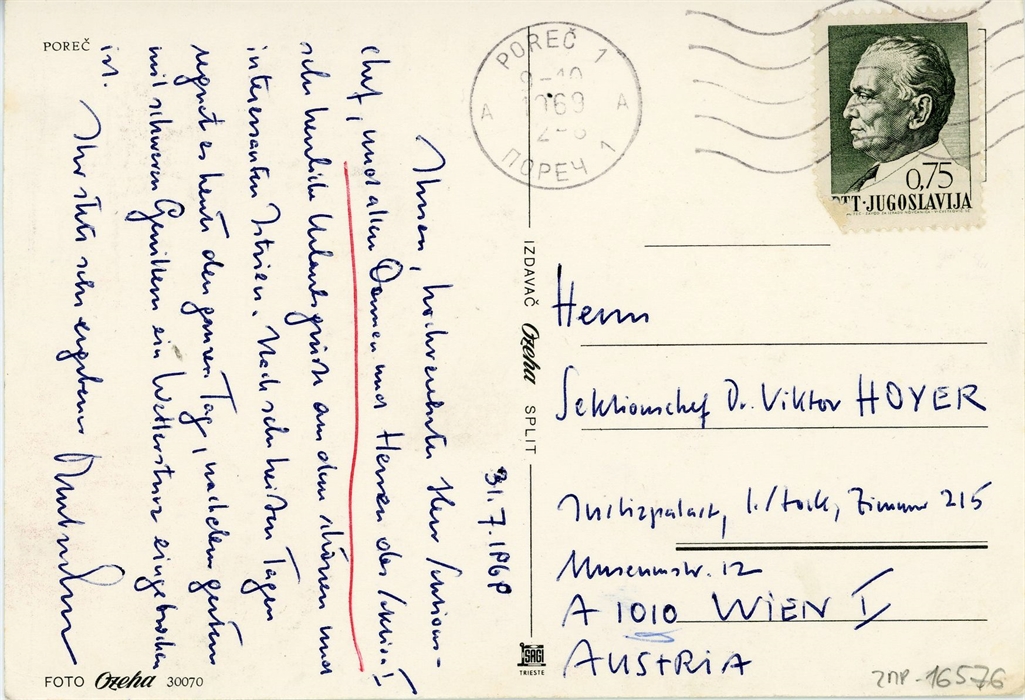 POREČ
POREČ 1
9-10
1969
2-8
A
A
ПОРЕЧ 1
0,75
PTT·JUGOSLAVIJA
31.7.1969
Ihnen, hochverehrter Herr Sektions-
chef, und allen Damen und Herren der Sektion I
sehr herzliche Urlaubsgrüße aus dem schönen und
interessanten Istrien. Nach sehr heißen Tagen
regnet es heute den ganzen Tag, nachdem gestern
mit schweren Gewittern ein Wettersturz eingebrochen
ist.
Ihr stets sehr ergebener
IZDAVAČ Ozeha SPLIT
Herrn
Sektionschef Dr. Viktor HOYER
Justizpalast, 1. Stock, Zimmer 215
Museumstr. 12
A 1010 WIEN I
AUSTRIA
SAGI
TRIESTE
FOTO Ozeha 30070
ZMP-16576